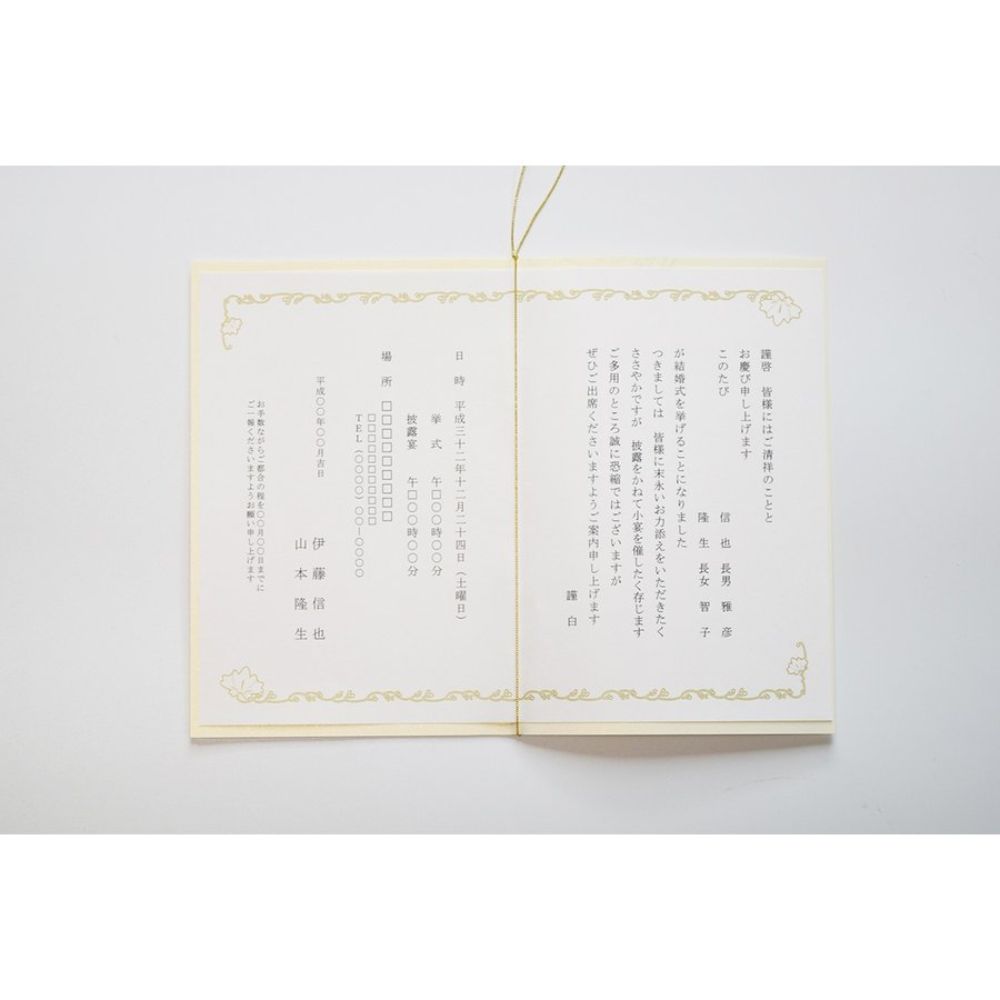 謹啓　皆様にはご清祥のことと
お慶び申し上げます
このたび
信也　長男　雅彦
隆生　長女　智子
が結婚式を挙げることになりました
つきましては　皆様に末永いお力添えをいただきたく
ささやかですが　披露をかねて小宴を催したく存じます
ご多用のところ誠に恐縮ではございますが
ぜひご出席くださいますようご案内申し上げます
謹白
日　時　平成三十二年十二月二十四日（土曜日）
挙　式　午□〇〇時〇〇分
披露宴　午□〇〇時〇〇分
場　所　□□□□□□□□□
□□□□□□□□□□
TEL（〇〇〇〇）〇〇ー〇〇〇〇
平成〇〇年〇〇月吉日
伊藤信也
山本隆生
お手数ながらご都合の程を〇〇月〇〇日までに
ご一報くださいますようお願い申し上げます